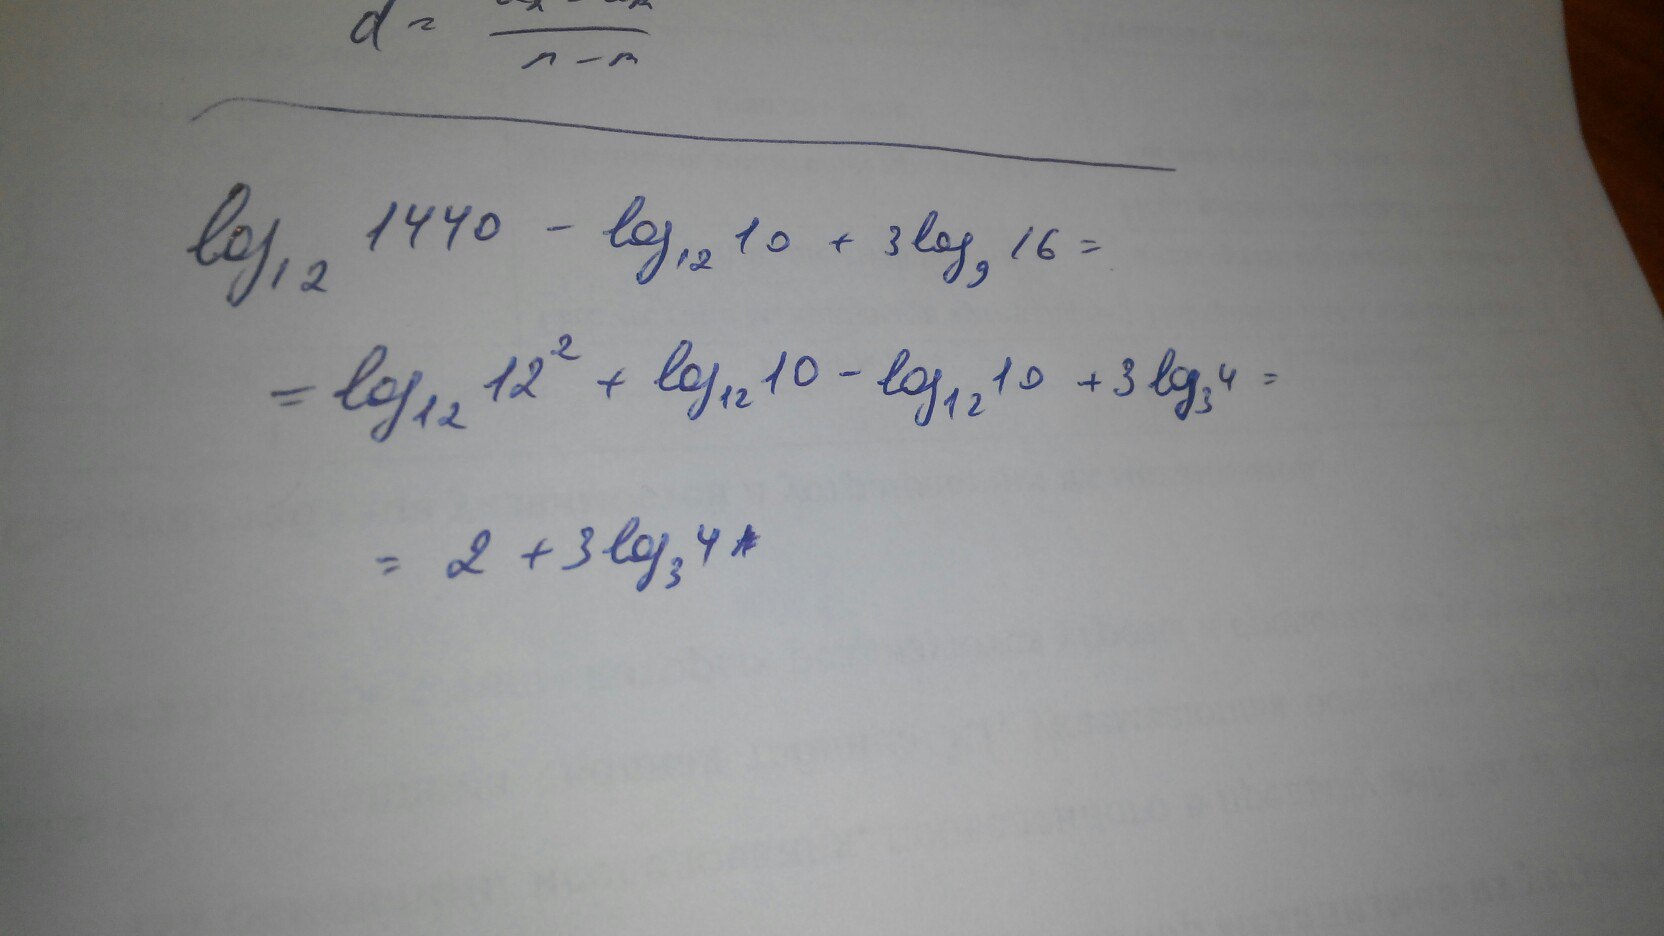 d = 
n - m
log₁₂ 1440 - log₁₂ 10 + 3 log₉ 16 =
= log₁₂ 12² + log₁₂ 10 - log₁₂ 10 + 3 log₃ 4 =
= 2 + 3 log₃ 4